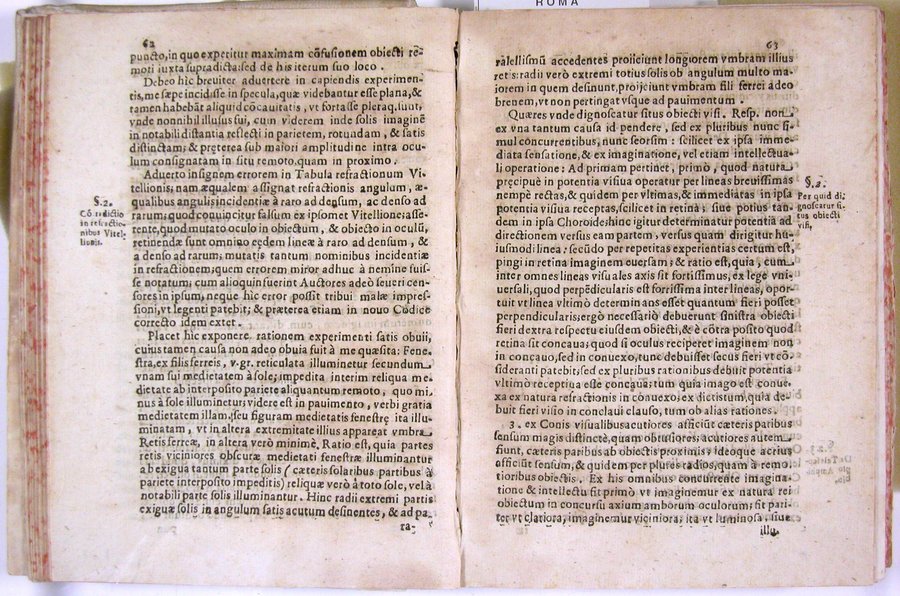 ROMA
62
puncto, in quo experitur maximam cōfusionem obiecti re-
moti iuxta supradicta: sed de his iterum suo loco.
Debeo hìc breuiter aduertere in capiendis experimen-
tis, me sæpe incidisse in specula, quæ videbantur esse plana, &
tamen habebāt aliquid cōcauitatis, vt fortasse pleraq. sunt,
vnde nonnihil illusus fui, cum viderem inde solis imaginē
in notabili distantia reflecti in parietem, rotundam, & satis
distinctam; & præterea sub maiori amplitudine intra ocu-
lum consignatam in situ remoto, quam in proximo.
Aduerto insignem errorem in Tabula refractionum Vi-
tellionis; nam æqualem assignat refractionis angulum, æ-
qualibus angulis incidentiæ à raro ad densum, ac denso ad
rarum; quod conuincitur falsum ex ipsomet Vitellione; asse-
rente, quod mutato oculo in obiectum, & obiecto in oculū,
retinendæ sunt omnino eędem lineæ à raro ad densum, &
a denso ad rarum; mutatis tantum nominibus incidentiæ
in refractionem; quem errorem miror adhuc à nemine fuis-
se notatum; cum alioquin fuerint Auctores adeò seueri cen-
sores in ipsum, neque hic error possit tribui malæ impres-
sioni, vt legenti patebit; & præterea etiam in nouo Codice
correcto idem extet.
Placet hìc exponere rationem experimenti satis obuij,
cuius tamen causa non adeo obuia fuit à me quæsita: Fene-
stra, ex filis ferreis, v. gr. reticulata illuminetur secundum
vnam sui medietatem à sole; impedita interim reliqua me-
dietate ab interposito pariete aliquantum remoto, quo mi-
nus à sole illuminetur; videre est in pauimento, verbi gratia
medietatem illam, seu figuram medietatis fenestrę ita illu-
minatam, vt in altera extremitate illius appareat vmbra
Retis ferreæ, in altera verò minimè. Ratio est, quia partes
retis viciniores obscuræ medietati fenestræ illuminantur
ab exigua tantum parte solis (cæteris solaribus partibus à
pariete interposito impeditis) reliquæ verò à toto sole, vel à
notabili parte solis illuminantur. Hinc radij extremi partis
exiguæ solis in angulum satis acutum desinentes, & ad pa-
ra-
§. 2.
Cōtradictio
in refractio-
nibus Vitel-
lionis.
63
rallelismū accedentes proijciunt longiorem vmbram illius
retis: radij verò extremi totius solis ob angulum multo ma-
iorem in quem desinunt, proijciunt vmbram fili ferrei adeo
breuem, vt non pertingat vsque ad pauimentum.
Quæres vnde dignoscatur situs obiecti visi. Resp. non
ex vna tantum causa id pendere, sed ex pluribus nunc si-
mul concurrentibus, nunc seorsim: scilicet ex ipsa imme-
diata sensatione, & ex imaginatione, vel etiam intellectua-
li operatione: Ad primam pertinet, primò, quod natura
pręcipuè in potentia visiua operatur per lineas breuissimas
nempè rectas, & quidem per vltimas, & immediatas in ipsa
potentia visiua receptas, scilicet in retina; siue potius tan-
dem in ipsa Choroide: hinc igitur determinatur potentia ad
directionem versus eam partem, versus quam dirigitur hu-
iusmodi linea: secūdo per repetitas experientias certum est,
pingi in retina imaginem euersam; & ratio est, quia, cum
inter omnes lineas visuales axis sit fortissimus, ex lege vni-
uersali, quod perpēdicularis est forrissima inter lineas, opor-
tuit vt linea vltimò determinans esset quantum fieri posset
perpendicularis; ergò necessariò debuerunt sinistra obiecti
fieri dextra respectu eiusdem obiecti, & è cōtra posito quod
retina sit concaua; quod si oculus reciperet imaginem non
in concauo, sed in conuexo, tunc debuisset secus fieri vt cō-
sideranti patebit, sed ex pluribus rationibus debuit potentia
vltimò receptiua esse concaua: tum quia imago est conue-
xa ex natura refractionis in conuexo: ex dictis tum, quia de-
buit fieri visio in conclaui clauso, tum ob alias rationes.
3. ex Conis visualibus acutiores afficiūt cæteris paribus
sensum magis distinctè, quam obtusiores; acutiores autem
fiunt, cæteris paribus ab obiectis proximis; ideoque acrius
afficiūt sensum, & quidem per plures radios, quam à remo-
tioribus obiectis. Ex his omnibus concurrente imagina-
tione & intellectu fit primò vt imaginemur ex natura rei
obiectum in concursu axium amborum oculorum: fit pari-
ter vt clariora, imaginemur viciniora; ita vt luminosa, siue
illu-
§. 2.
Per quid di-
gnoscatur si-
tus obiecti
visi,